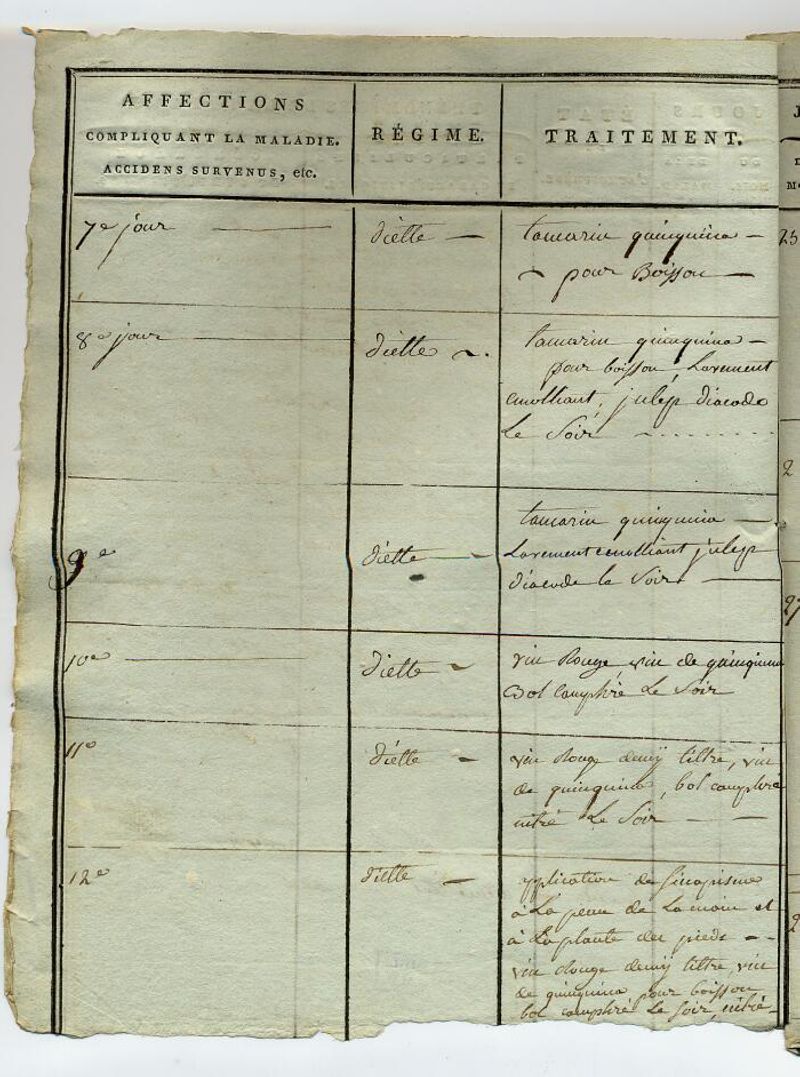 AFFECTIONS
COMPLIQUANT LA MALADIE.
ACCIDENS SURVENUS, etc.
RÉGIME.
TRAITEMENT.
7e jour
diette
tamarin quinquina
pour Boisson
8e jour
diette
tamarin quinquina
pour boisson, Lavement
emolliant, julep diacode
Le Soir
9e
diette
tamarin quinquina
Lavement emolliant julep
diacode le Soir
10e
diette
vin Rouge, vin de quinquina
Bol camphré Le Soir
11e
diette
vin Rouge demÿ littre, vin
de quinquina, bol camphré
nitré Le Soir
12e
diette
application de Sinapisme
à La peau de La main et
à La plante des pieds
vin Rouge demÿ littre, vin
de quinquina pour boisson
bol camphré Le Soir, nitré
25
2
27
2